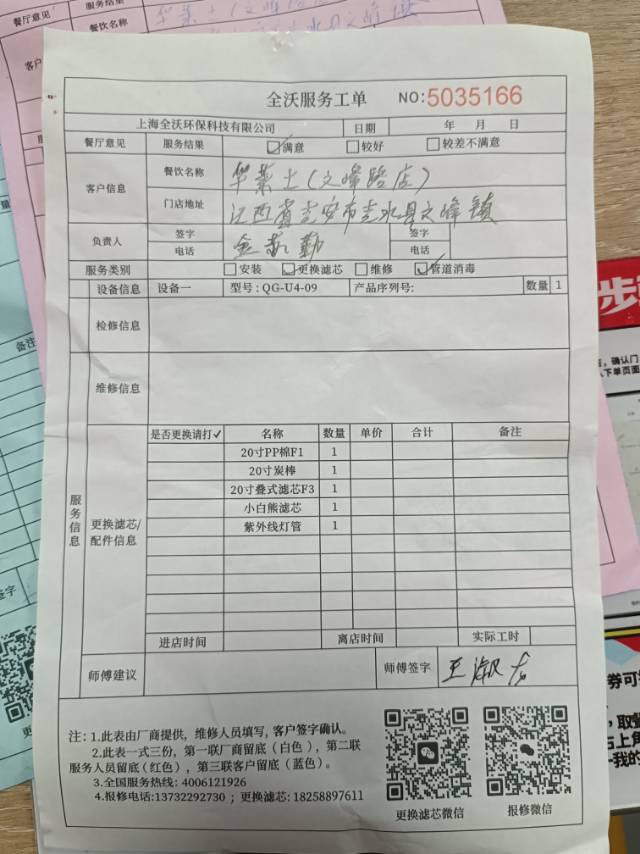 全沃服务工单 NO:5035166
上海全沃环保科技有限公司 日期 年 月 日
餐厅意见 服务结果 ☑满意 □较好 □较差不满意
客户信息 餐饮名称 华莱士(文峰路店)
门店地址 江西省吉安市吉水县文峰镇
负责人 签字 签字
电话 电话
服务类别 □安装 ☑更换滤芯 □维修 ☑管道消毒
设备信息 设备一 型号:QG-U4-09 产品序列号: 数量 1
检修信息
维修信息
服务信息
更换滤芯/配件信息
是否更换请打✓ 名称 数量 单价 合计 备注
20寸PP棉F1 1
20寸炭棒 1
20寸叠式滤芯F3 1
小白熊滤芯 1
紫外线灯管 1
进店时间 离店时间 实际工时
师傅建议 师傅签字
注: 1.此表由厂商提供，维修人员填写，客户签字确认。
2.此表一式三份，第一联厂商留底（白色），第二联
服务人员留底(红色)，第三联客户留底（蓝色）。
3.全国服务热线: 4006121926
4.报修电话:13732292730；更换滤芯: 18258897611
更换滤芯微信 报修微信
餐厅意见 服务结果
餐饮名称
备注
签字